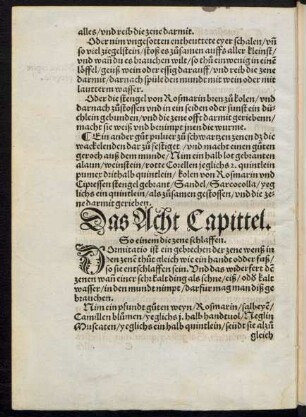 alles/ vnd reib die zene darmit.
Oder nim vngesotten entheuttete eyer schalen/ vñ
so viel ziegelstein/ stoß es zůsamen auffs aller kleinst/
vnd wan du es brauchen wilt/ so thů ein wenig in einē
löffel/ geuß wein oder essig darauff/ vnd reib die zene
darmit/ darnach spüle den mundt mit wein oder mit
lauterm wasser.
Oder die stengel von Rosmarin bren zů kolen/ vnd
darnach zůstossen vnd in ein seiden oder sunst ein důch-
lein gebunden/ vnd die zene offt darmit geriebenn/
macht sie weiß vnd benimpt jnen die wurme.
Ein ander gůt puluer zů schwartzen zenen dz die
wackelenden dar zů festiget/ vnd macht einen gůten
geroch auß dem munde/ Nim ein halb lot gebranten
alaun/ weinstein/ rotte Corellen jeglichs j. quintlein
pumex dritthalb quintlein/ kolen von Rosmarin vnd
Cipressen stengel gebrant/ Sandel/ Sarcocolla/ yeg
lichs ein quintlein/ als zůsamen gestossen/ vnd die ze-
ne darmit gerieben.
Das Acht Capittel.
So einem die zene schlaffen.
Dormitatio ist ein gebrechen der zene wenß in
den zenē thůt gleich wie ein handt odder fuß/
so sie entschlaffen sein. Vnd das widerfert dē
zenen wan einer sehr kalt ding als schne/ eiß/ odd' kalt
wasser/ in den mundt nimpt/ darfur mag man diß ge
brauchen.
Nim ein pfundt gůten weyn/ Rosmarin/ salbeyē/
Camillen blůmen/ yeglichs j. halb handtuol/ Neglin
Muscaten/ yeglichs ein halb quintlein/ seudt sie al zů
gleich